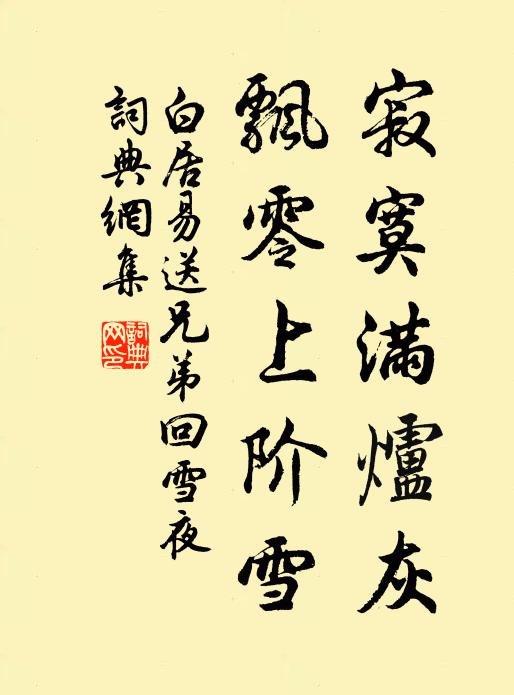 寂寞满爐灰
飄零上阶雪
白居易送兄弟回雪夜
詞典網集
詞典网印